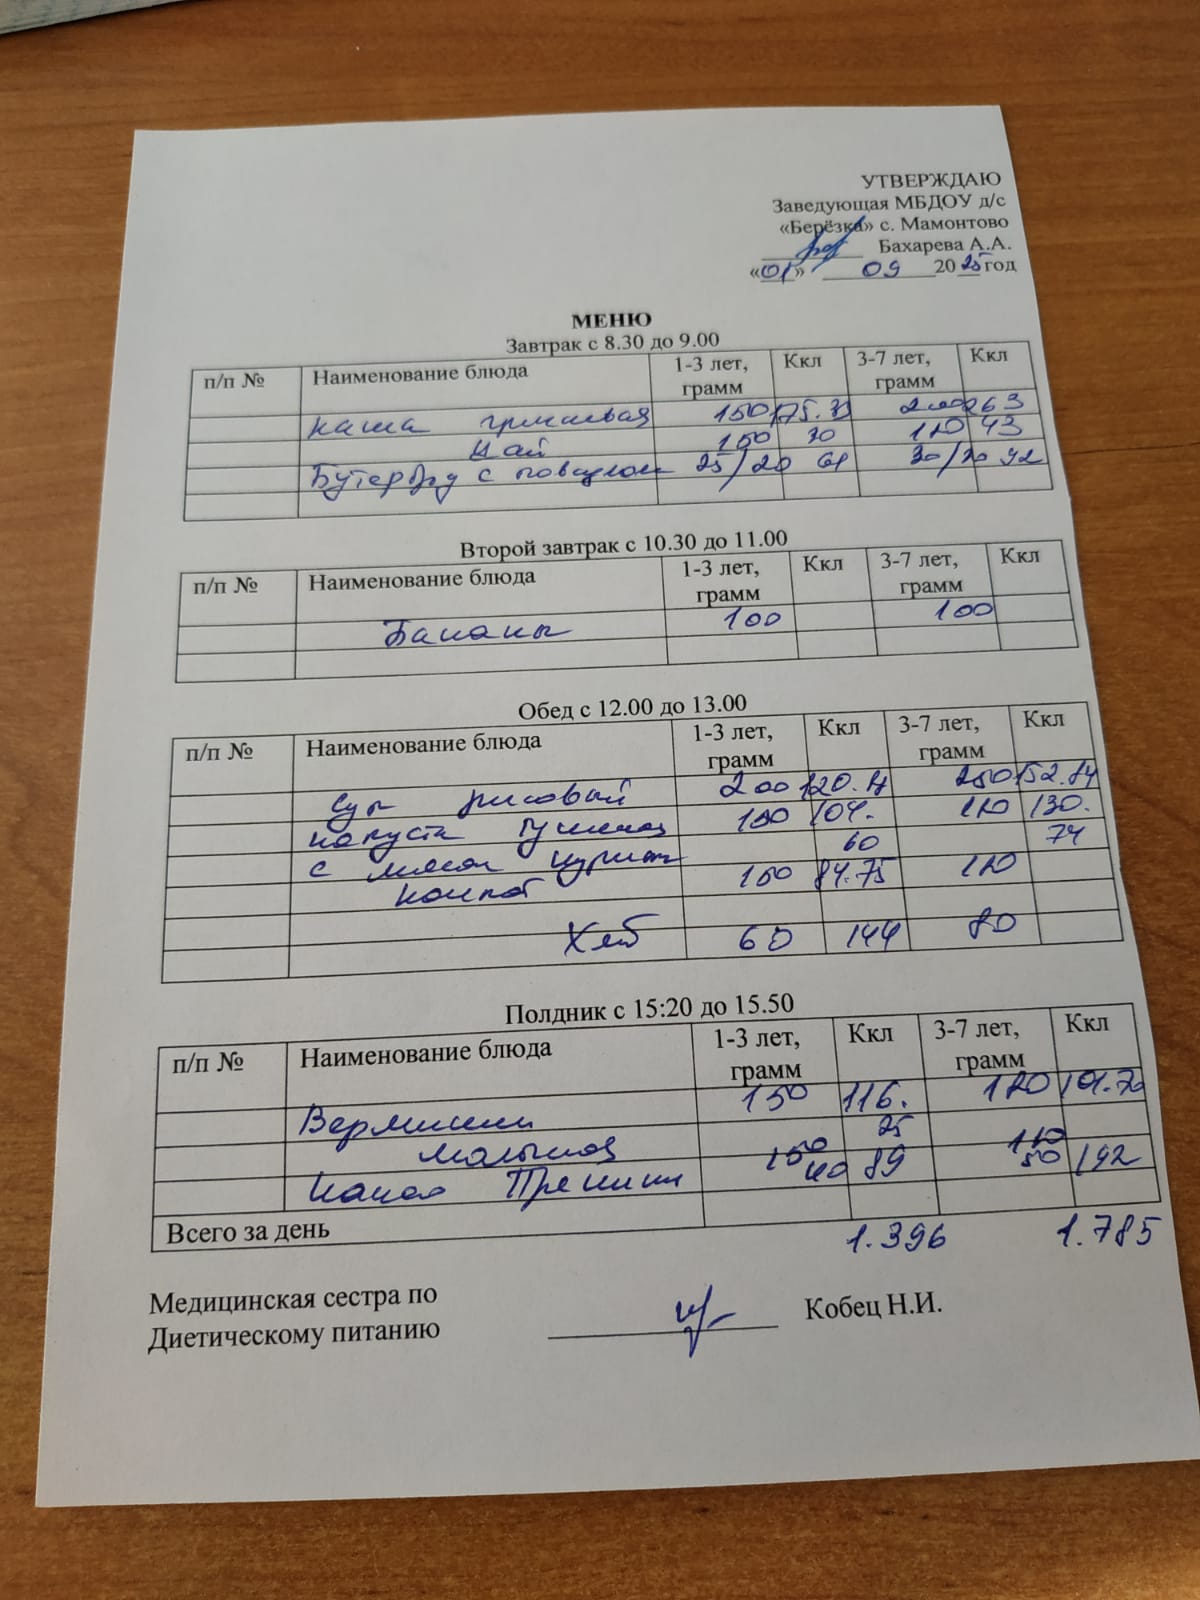 УТВЕРЖДАЮ
Заведующая МБДОУ д/с
«Берёзка» с. Мамонтово
Бахарева А.А.
«01» 09 2025 год
МЕНЮ
Завтрак с 8.30 до 9.00
п/п № Наименование блюда 1-3 лет, грамм Ккл 3-7 лет, грамм Ккл
каша 150 200 263
Чай 150 30 43
Бутерброд с повидлом 25/20 30/20 92
Второй завтрак с 10.30 до 11.00
п/п № Наименование блюда 1-3 лет, грамм Ккл 3-7 лет, грамм Ккл
Бананы 100 100
Обед с 12.00 до 13.00
п/п № Наименование блюда 1-3 лет, грамм Ккл 3-7 лет, грамм Ккл
Суп рисовый 200 250 152.84
капуста тушеная 150 104. 130.
с мясом курицы 60 74
компот 150 84.75
Хлеб 60 144 80
Полдник с 15:20 до 15.50
п/п № Наименование блюда 1-3 лет, грамм Ккл 3-7 лет, грамм Ккл
Вермишель 150 116.
молочная 25
какао Пряники 150 40 89 50 192
Всего за день 1.396 1.785
Медицинская сестра по
Диетическому питанию Кобец Н.И.